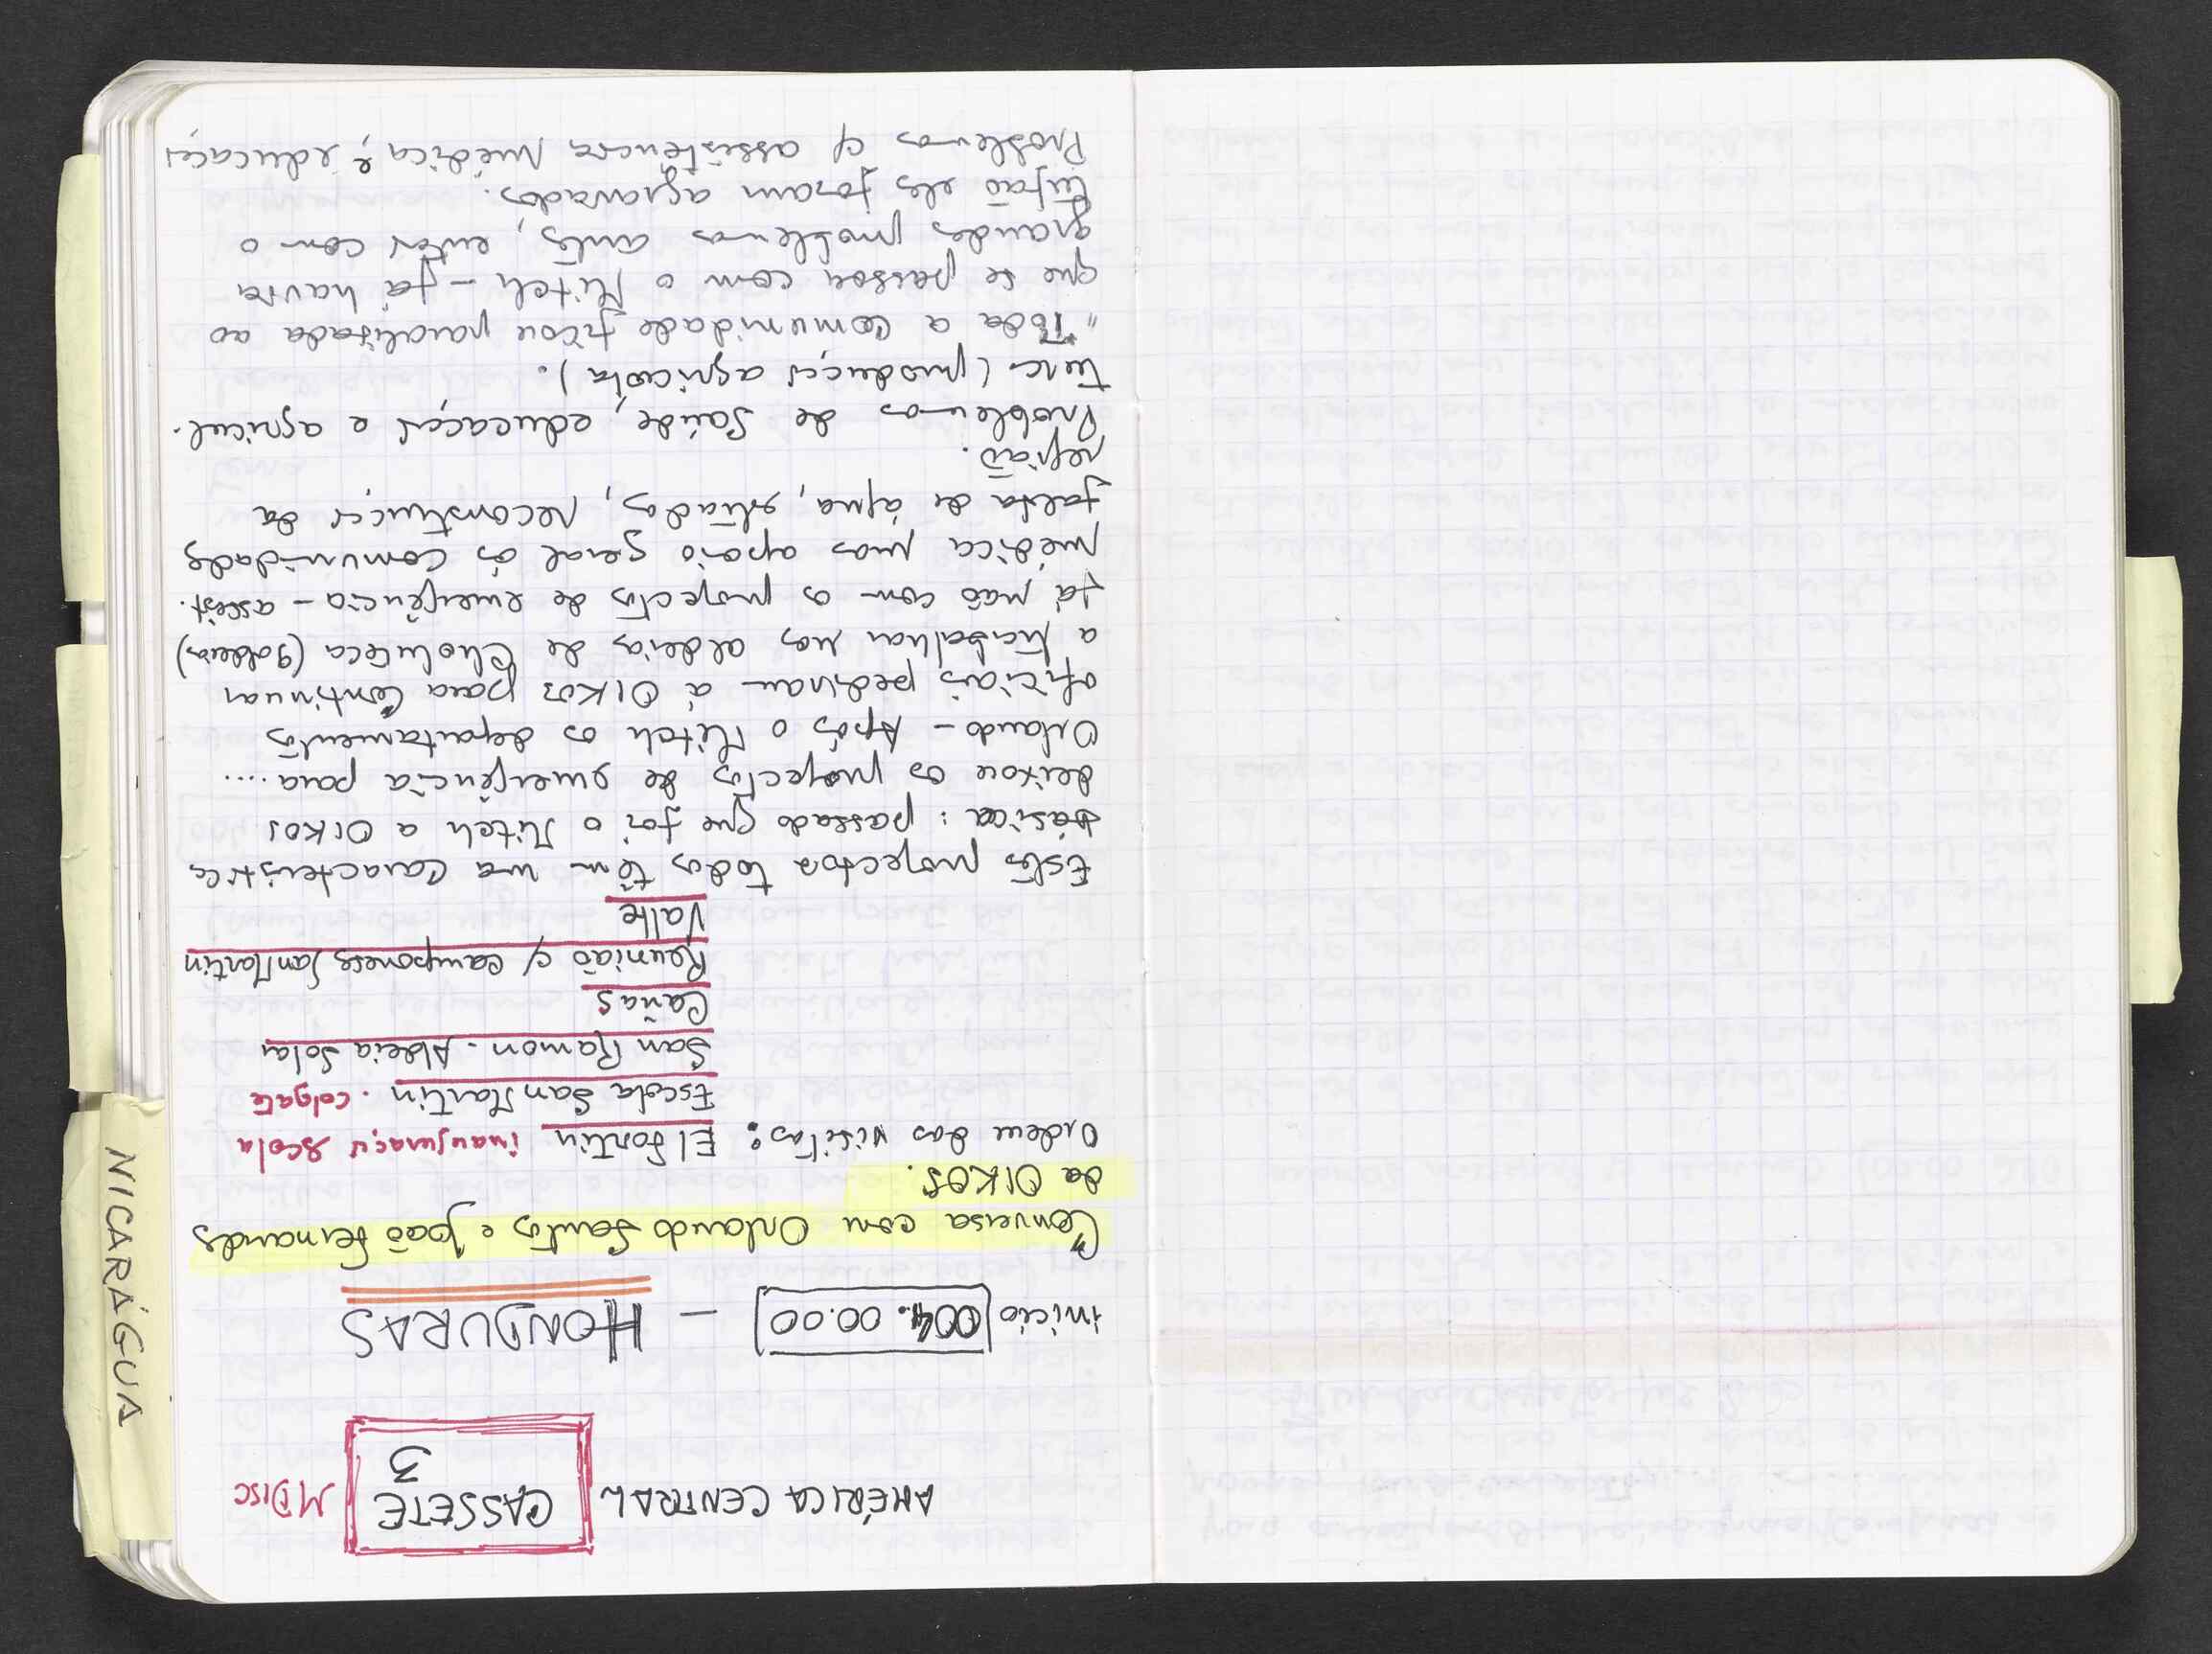 AMÉRICA CENTRAL CASSETE 3 MDISC
início 004.00.00 - HONDURAS
Conversa com Orlando Santos e João Fernandes
da OIKOS.
Ordem das visitas: El Fortin inauguraçã escola
Escola San Martin . colgate
San Ramon - Aldeia Solar
Cañas
Reunião c/ camponeses San Martin
Valle
Estes projectos todos têm uma característica
básica: passado que foi o Mitch a OIKOS
deixou os projectos de emergência para....
Orlando - Após o Mitch os departamentos
oficiais pediram à OIKOS para continuar
a trabalhar nas aldeias de Choluteca (9 aldeias)
Já não com os projectos de emergência - assist.
médica mas apoio geral às comunidades
falta de água, estradas, reconstruçã da
região.
Problemas de saúde, educaçã e agricul.
tura (produçã agrícola).
"Toda a comunidade ficou paralisada ao
que se passou com o Mitch - Já havia
grandes problemas antes, então com o
tufão eles foram agravados.
Problemas c/ assistência médica, e educaçã
NICARÁGUA